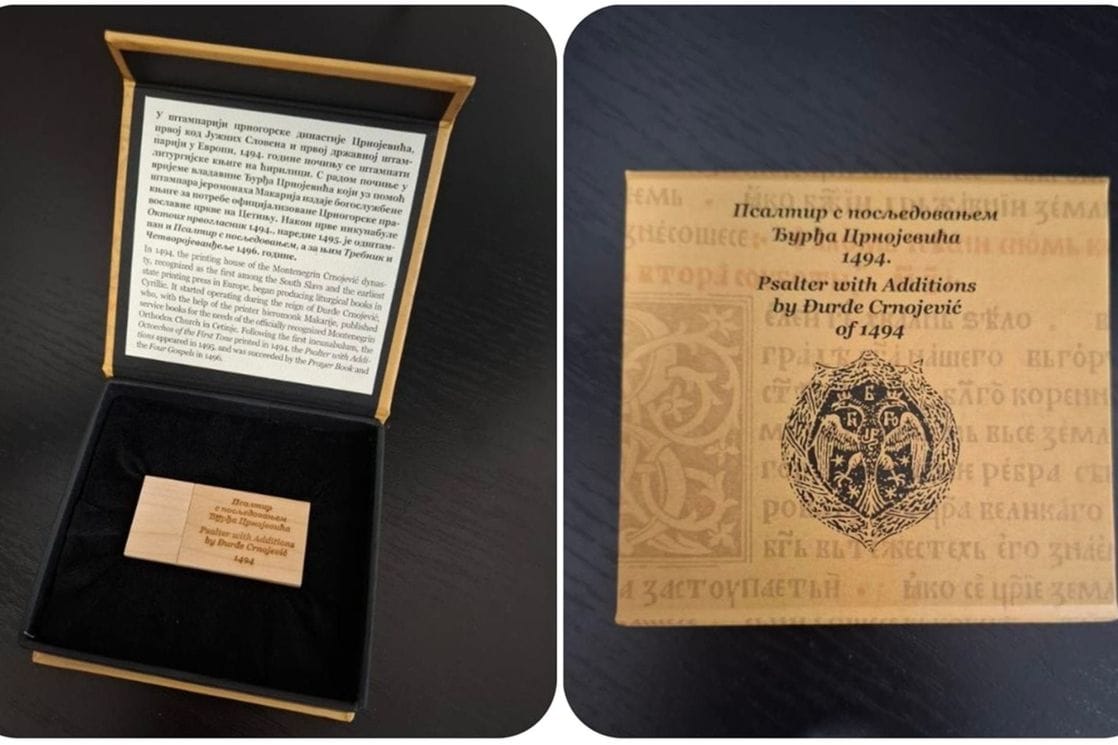 У штампарији црногорске династије Црнојевића,
првој код Јужних Словена и првој државној штам-
парији у Европи, 1494. године почињу се штампати
литургијске књиге на ћирилици. С радом почиње у
вријеме владавине Ђурђа Црнојевића који уз помоћ
штампара јеромонаха Макарија издаје богослужбене
књиге за потребе официјализоване Црногорске пра-
вославне цркве на Цетињу. Након прве инкунабуле
Октоих првогласник 1494., наредне 1495. је одштам-
пан и Псалтир с посљедовањем, а за њим Требник и
Четворојеванђеље 1496. године.
In 1494, the printing house of the Montenegrin Crnojević dynas-
ty, recognized as the first among the South Slavs and the earliest
state printing press in Europe, began producing liturgical books in
Cyrillic. It started operating during the reign of Đurđe Crnojević,
who, with the help of the printer hieromonk Makarije, published
service books for the needs of the officially recognized Montenegrin
Orthodox Church in Cetinje. Following the first incunabulum, the
Octoechos of the First Tone printed in 1494, the Psalter with Addi-
tions appeared in 1495, and was succeeded by the Prayer Book and
the Four Gospels in 1496.
Псалтир
с посљедовањем
Ђурђа Црнојевића
Psalter with Additions
by Đurđe Crnojević
1494
Псалтир с посљедовањем
Ђурђа Црнојевића
1494.
Psalter with Additions
by Đurđe Crnojević
of 1494